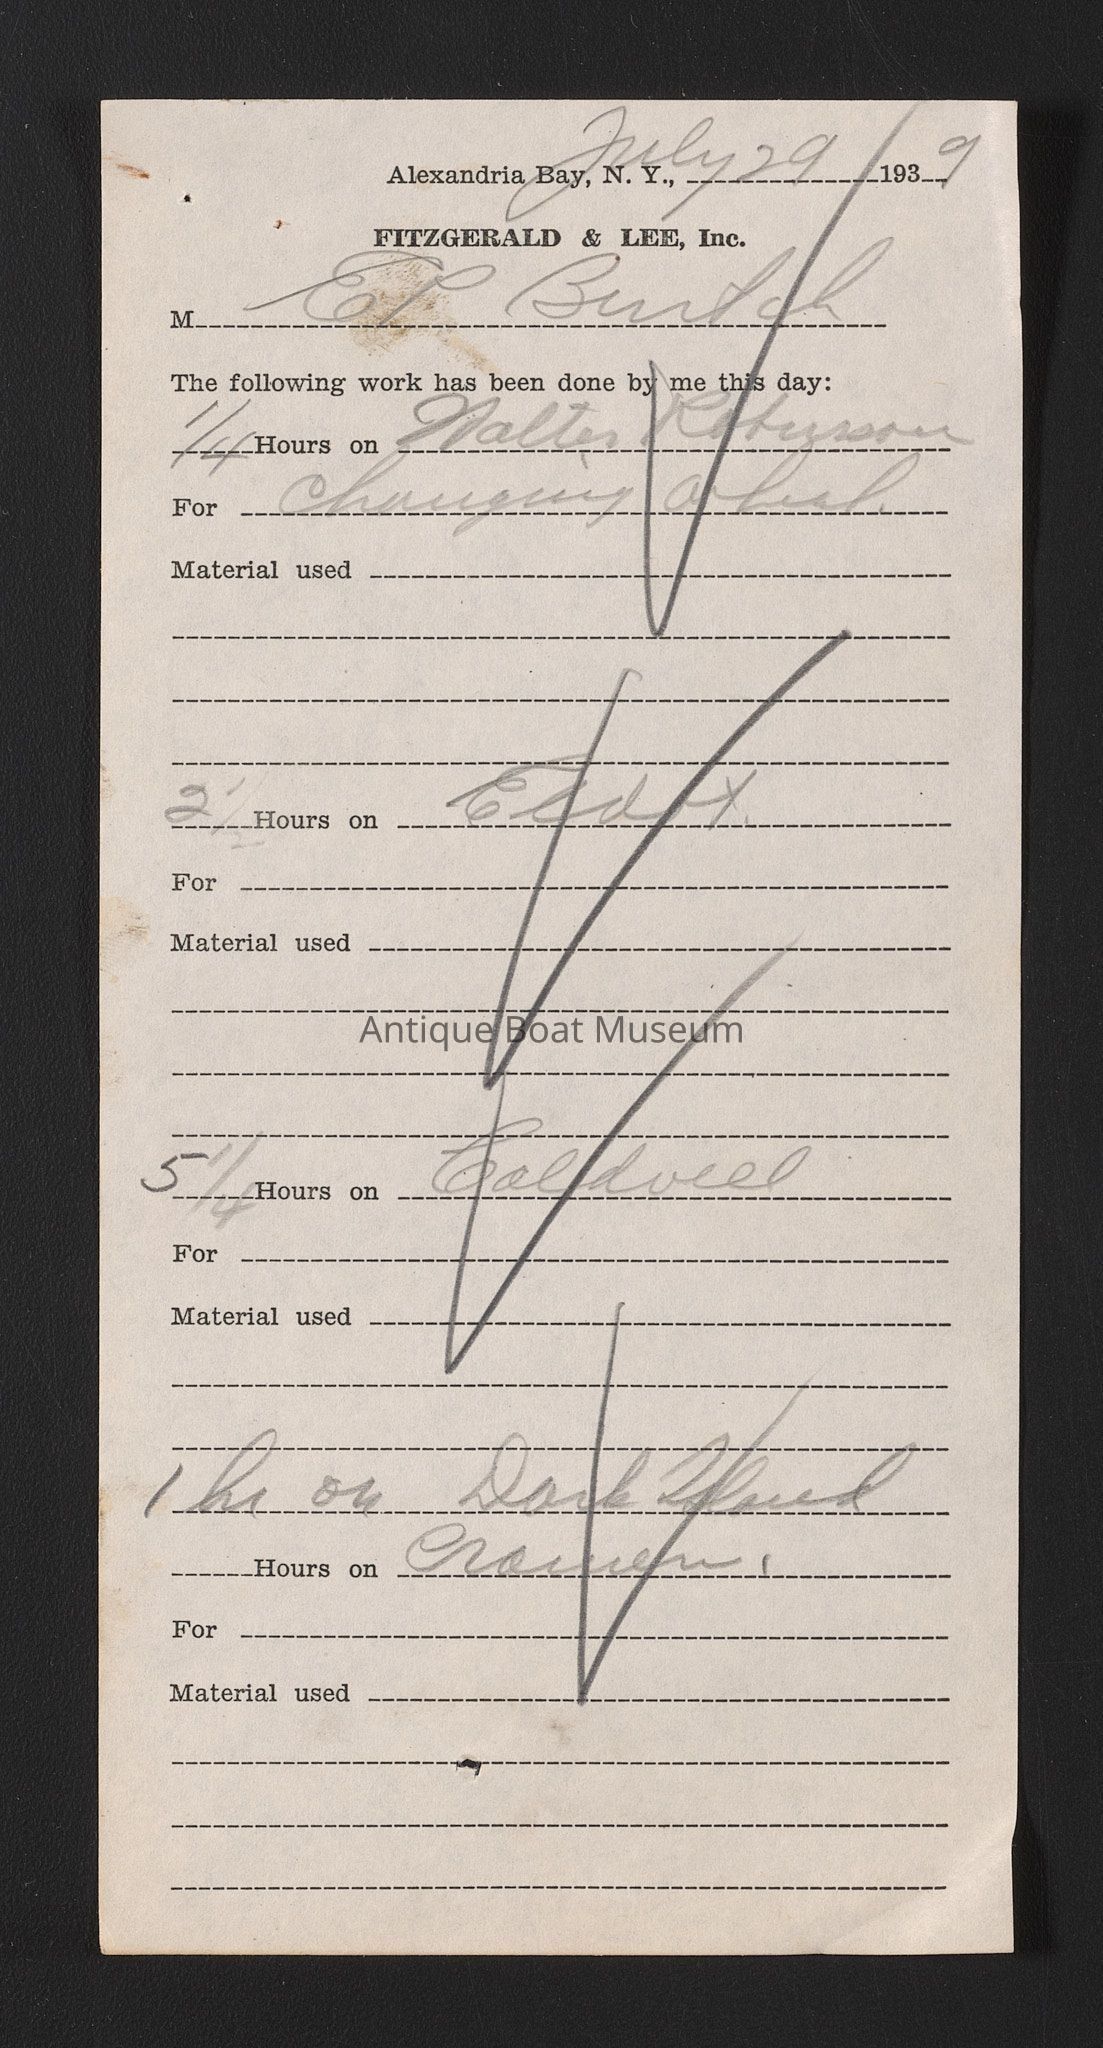 July 29 9
Alexandria Bay, N. Y., 193
FITZGERALD & LEE, Inc.
M E P Burtch
The following work has been done by me this day:
1/4 Hours on Walter Robinson
For Changing wheel.
Material used
2 1/2 Hours on
For
Material used
Antique Boat Museum
5 1/4 Hours on Caldwell
For
Material used
1 hr on Dark Island
Hours on
For
Material used